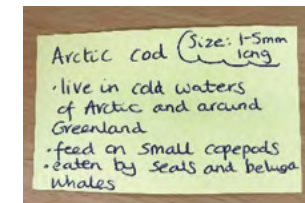 Arctic cod (Size: 1-5mm
long
• live in cold waters
of Arctic and around
Greenland
• feed on small copepods
• eaten by seals and beluga
whales